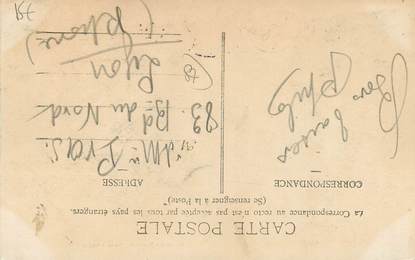 CARTE POSTALE
La Correspondance au recto n'est pas acceptée par tous les pays étrangers.
(Se renseigner à la Poste)
CORRESPONDANCE
ADRESSE
Bons baisers
M
Pras
83 Bd du Nord
Lyon
(Rhône)